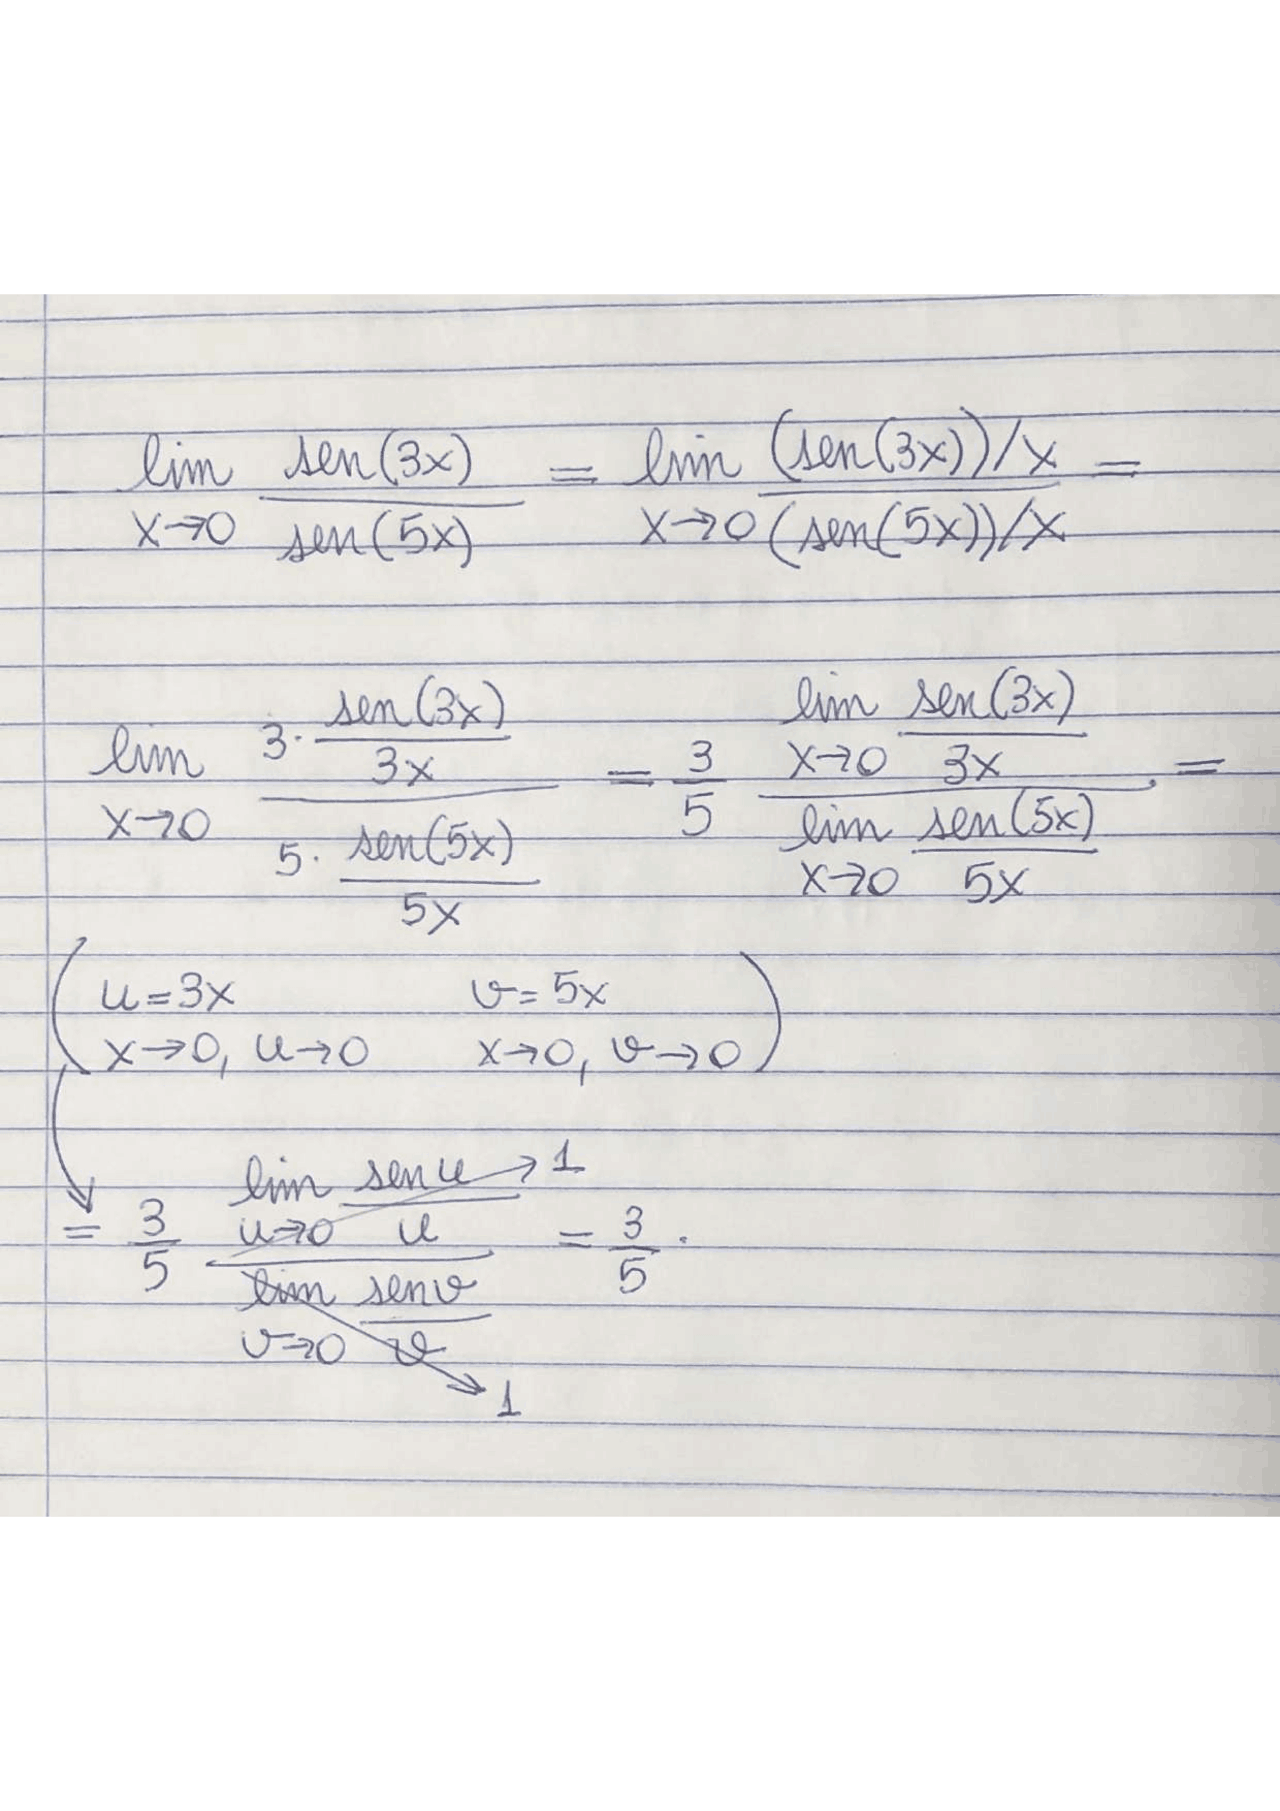 lim x→0 sen(3x)/sen(5x) = lim x→0 (sen(3x))/x / (sen(5x))/x =
lim x→0 3·sen(3x)/3x / 5·sen(5x)/5x = 3/5 lim x→0 sen(3x)/3x / lim x→0 sen(5x)/5x . =
(u=3x v=5x
x→0, u→0 x→0, v→0)
= 3/5 lim u→0 sen u/u →1 / lim v→0 sen v/v →1 = 3/5.